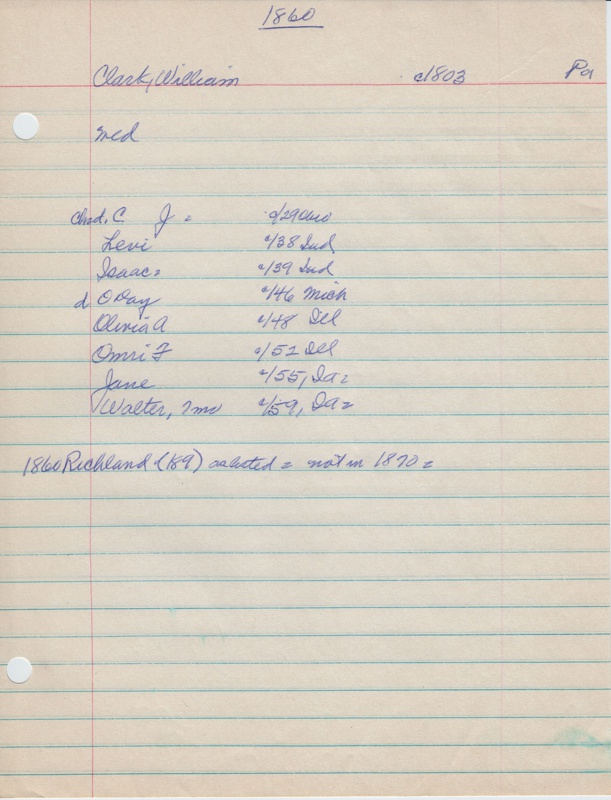 1860
Clark, William c1803 Pa
med
Chd. C. J = c/29
Levi c/38 Ind
Isaac = c/39 Ind
d O Day c/46 Mich
Olivia A c/48 Ill
Omri F c/52 Ill
Jane c/55, Ia =
Walter, 7 mo c/59, Ia =
1860 Richland (189) = not in 1870 =